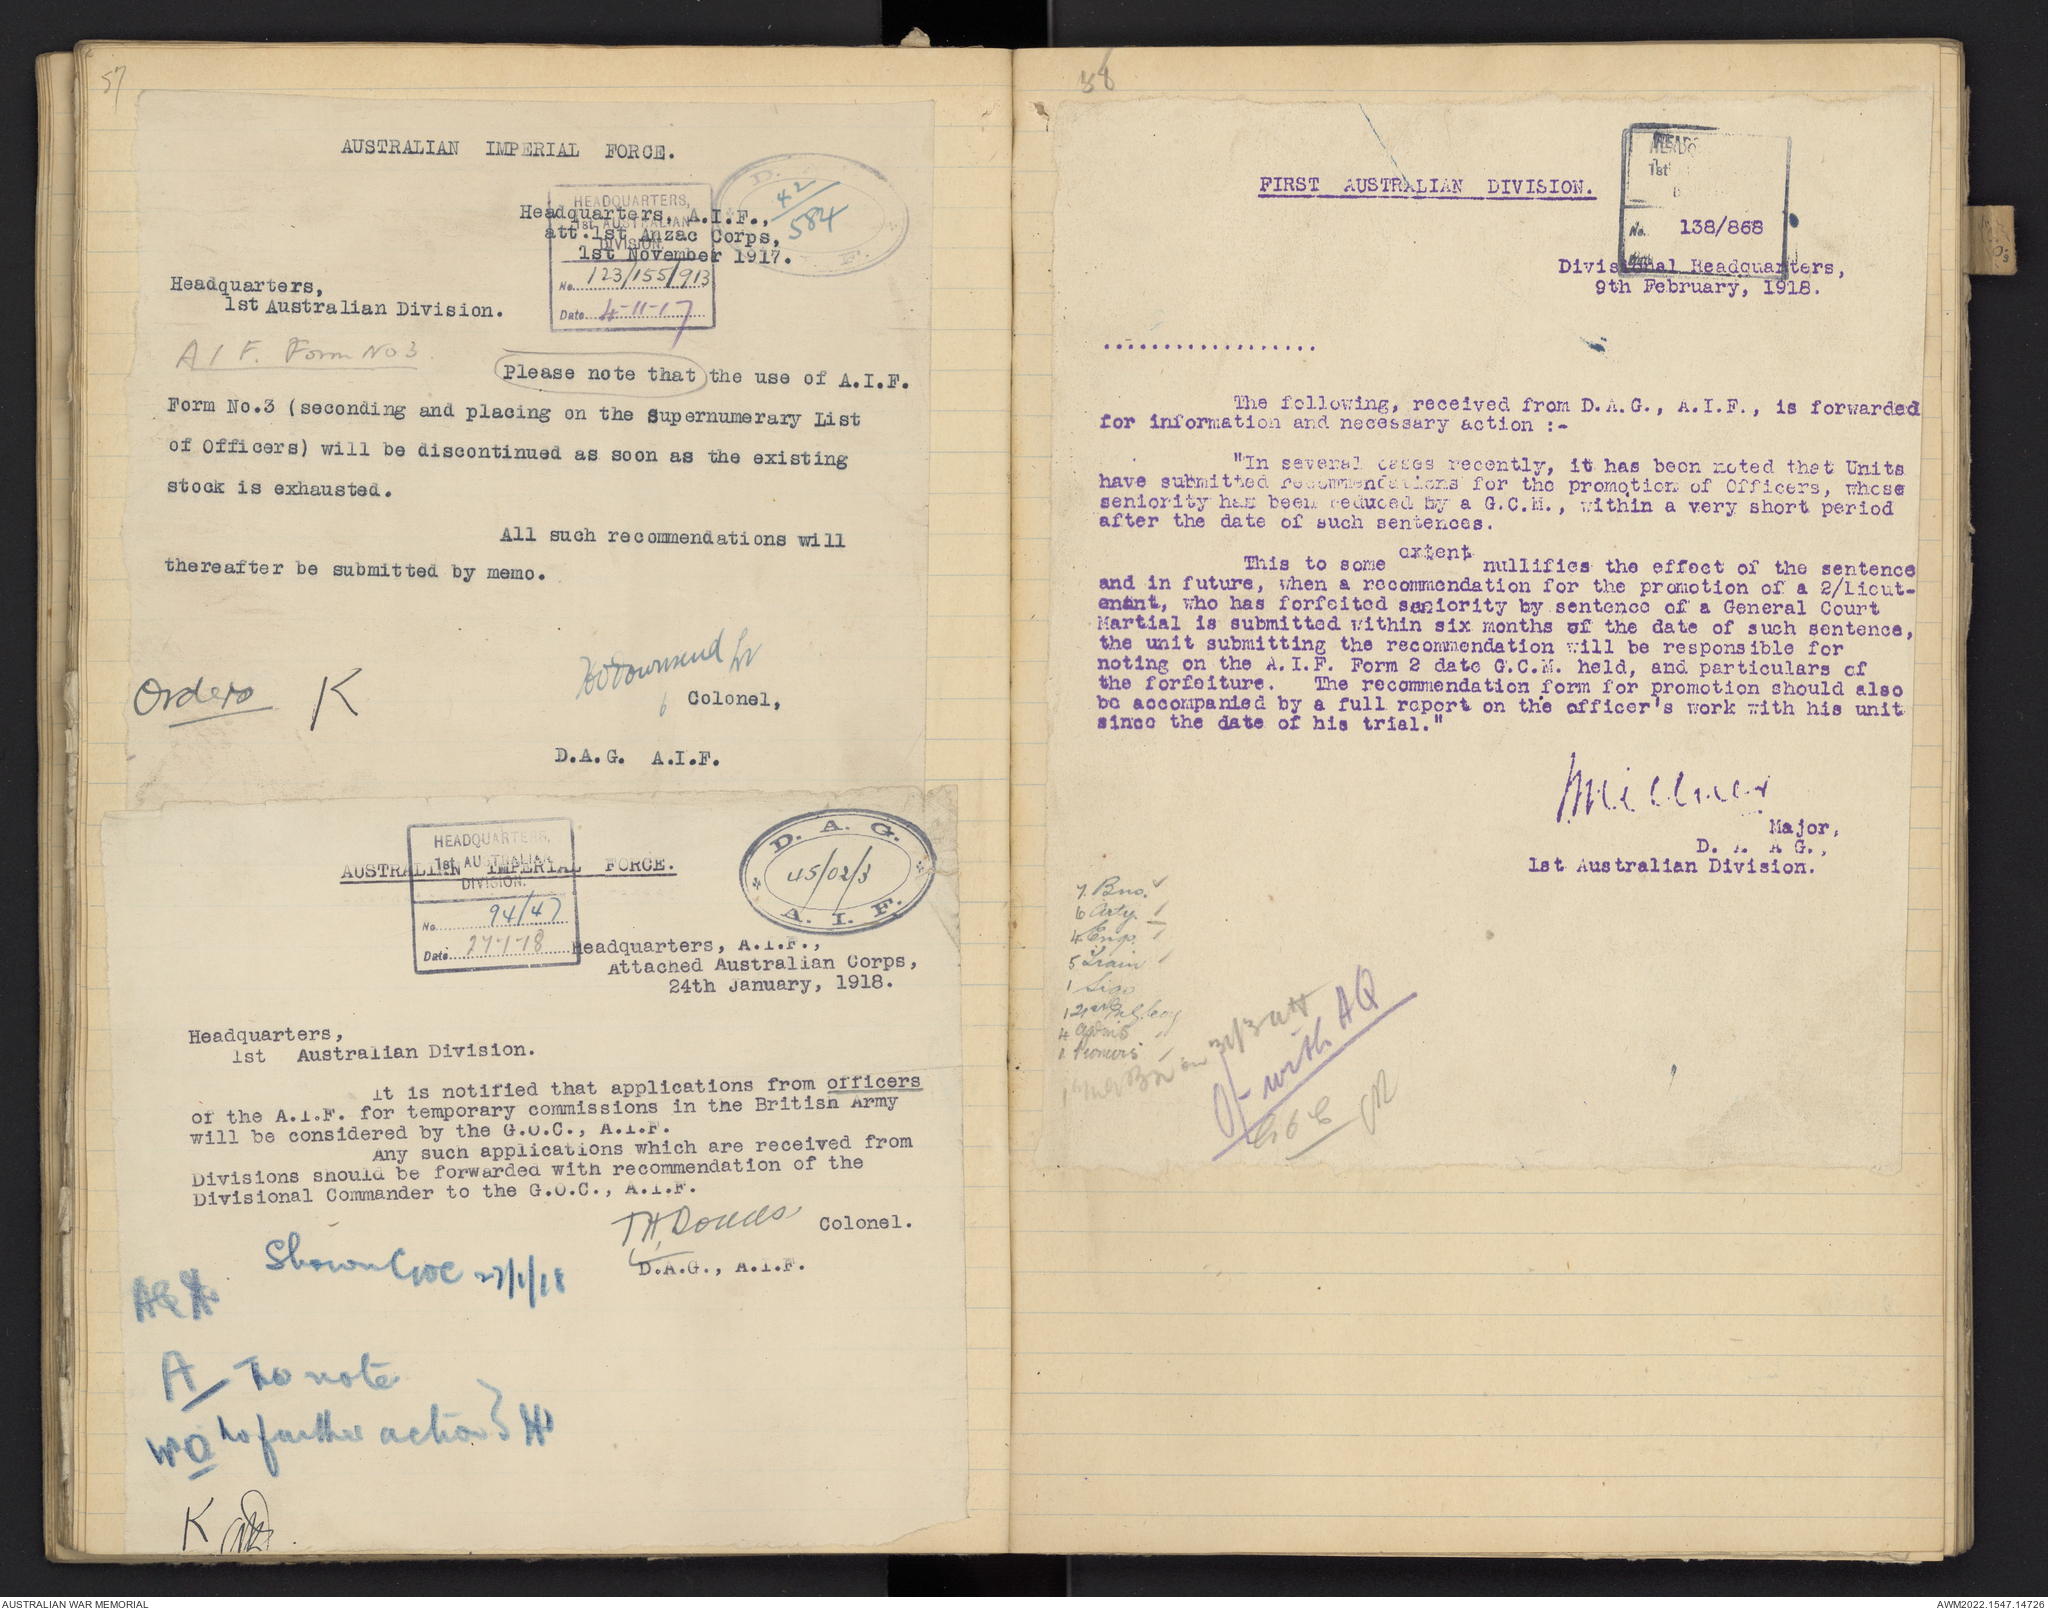 57
AUSTRALIAN IMPERIAL FORCE.
HEADQUARTERS,
1st AUSTRALIAN
DIVISION.
No. 123/155/913
Date 4-11-17
D.
42/584
F.
Headquarters, A.I.F.,
att. 1st Anzac Corps,
1st November 1917.
Headquarters,
1st Australian Division.
A I F. Form No 3.
Please note that the use of A.I.F.
Form No.3 (seconding and placing on the Supernumerary List
of Officers) will be discontinued as soon as the existing
stock is exhausted.
All such recommendations will
thereafter be submitted by memo.
Townsend Lt
Colonel,
Orders K
D.A.G. A.I.F.
HEADQUARTERS,
1st AUSTRALIAN
DIVISION.
No. 94/47
Date 27-1-18
D. A. G.
45/02/3
A. I. F.
AUSTRALIEN IMPERIAL FORCE.
Headquarters, A.I.F.,
Attached Australian Corps,
24th January, 1918.
Headquarters,
1st Australian Division.
It is notified that applications from officers
of the A.I.F. for temporary commissions in the British Army
will be considered by the G.O.C., A.I.F.
Any such applications which are received from
Divisions should be forwarded with recommendation of the
Divisional Commander to the G.O.C., A.I.F.
T.H. Dodds Colonel.
D.A.G., A.I.F.
Shown GOC 27/1/18
A To note
No further action
K
58
FIRST AUSTRALIAN DIVISION.
1st
No. 138/868
Divisional Headquarters,
9th February, 1918.
..................
The following, received from D.A.G., A.I.F., is forwarded
for information and necessary action :-
"In several cases recently, it has been noted that Units
have submitted recommendations for the promotion of Officers, whose
seniority has been reduced by a G.C.M., within a very short period
after the date of such sentences.
This to some extent nullifies the effect of the sentence
and in future, when a recommendation for the promotion of a 2/Lieut-
enant, who has forfeited seniority by sentence of a General Court
Martial is submitted within six months of the date of such sentence,
the unit submitting the recommendation will be responsible for
noting on the A.I.F. Form 2 date G.C.M. held, and particulars of
the forfeiture. The recommendation form for promotion should also
be accompanied by a full report on the officer's work with his unit
since the date of his trial."
Major,
D. A. A G.,
1st Australian Division.
7. Bns.
6 Arty.
4 Engs.
5 Train
1 Sigs
4
1 Pioneers
with AQ
AUSTRALIAN WAR MEMORIAL
AWM2022.1547.14726